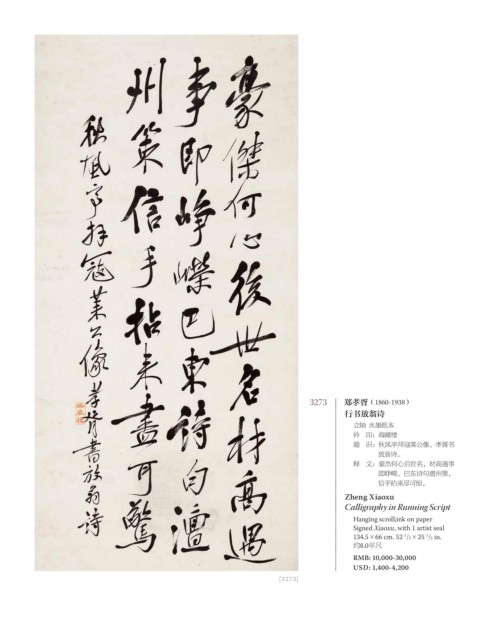 豪傑何心後世名材高遇
事即崢嶸巴東詩句澶
州策信手拈来盡可驚
秋風亭拜寇萊公像孝胥書放翁詩
3273
郑孝胥（1860-1938）
行书放翁诗
立轴 水墨纸本
钤 印：海藏楼
题 识：秋风亭拜寇莱公像。孝胥书
放翁诗。
释 文：豪杰何心后世名，材高遇事
即峥嵘。巴东诗句澶州策，
信手拈来尽可惊。
Zheng Xiaoxu
Calligraphy in Running Script
Hanging scroll;ink on paper
Signed Xiaoxu, with 1 artist seal
134.5 × 66 cm. 52 × 25 in.
约8.0平尺
RMB: 10,000-30,000
USD: 1,400-4,200
[3273]